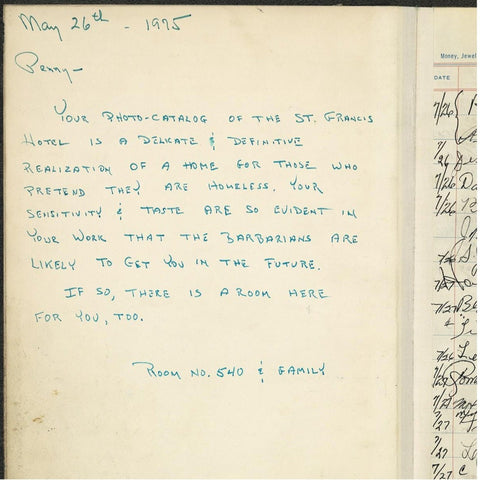 May 26th - 1975
Penny—
Your photo-catalog of the St. Francis
Hotel is a delicate & definitive
realization of a home for those who
pretend they are homeless. Your
sensitivity & taste are so evident in
your work that the barbarians are
likely to get you in the future.
If so, there is a room here
for you, too.
Room No. 540 & family
Money, Jewel
DATE
7/26
7/26
7/26
7/26
7/26
7/27
7/27
7/26
7/27
7/27
7/27
7/27